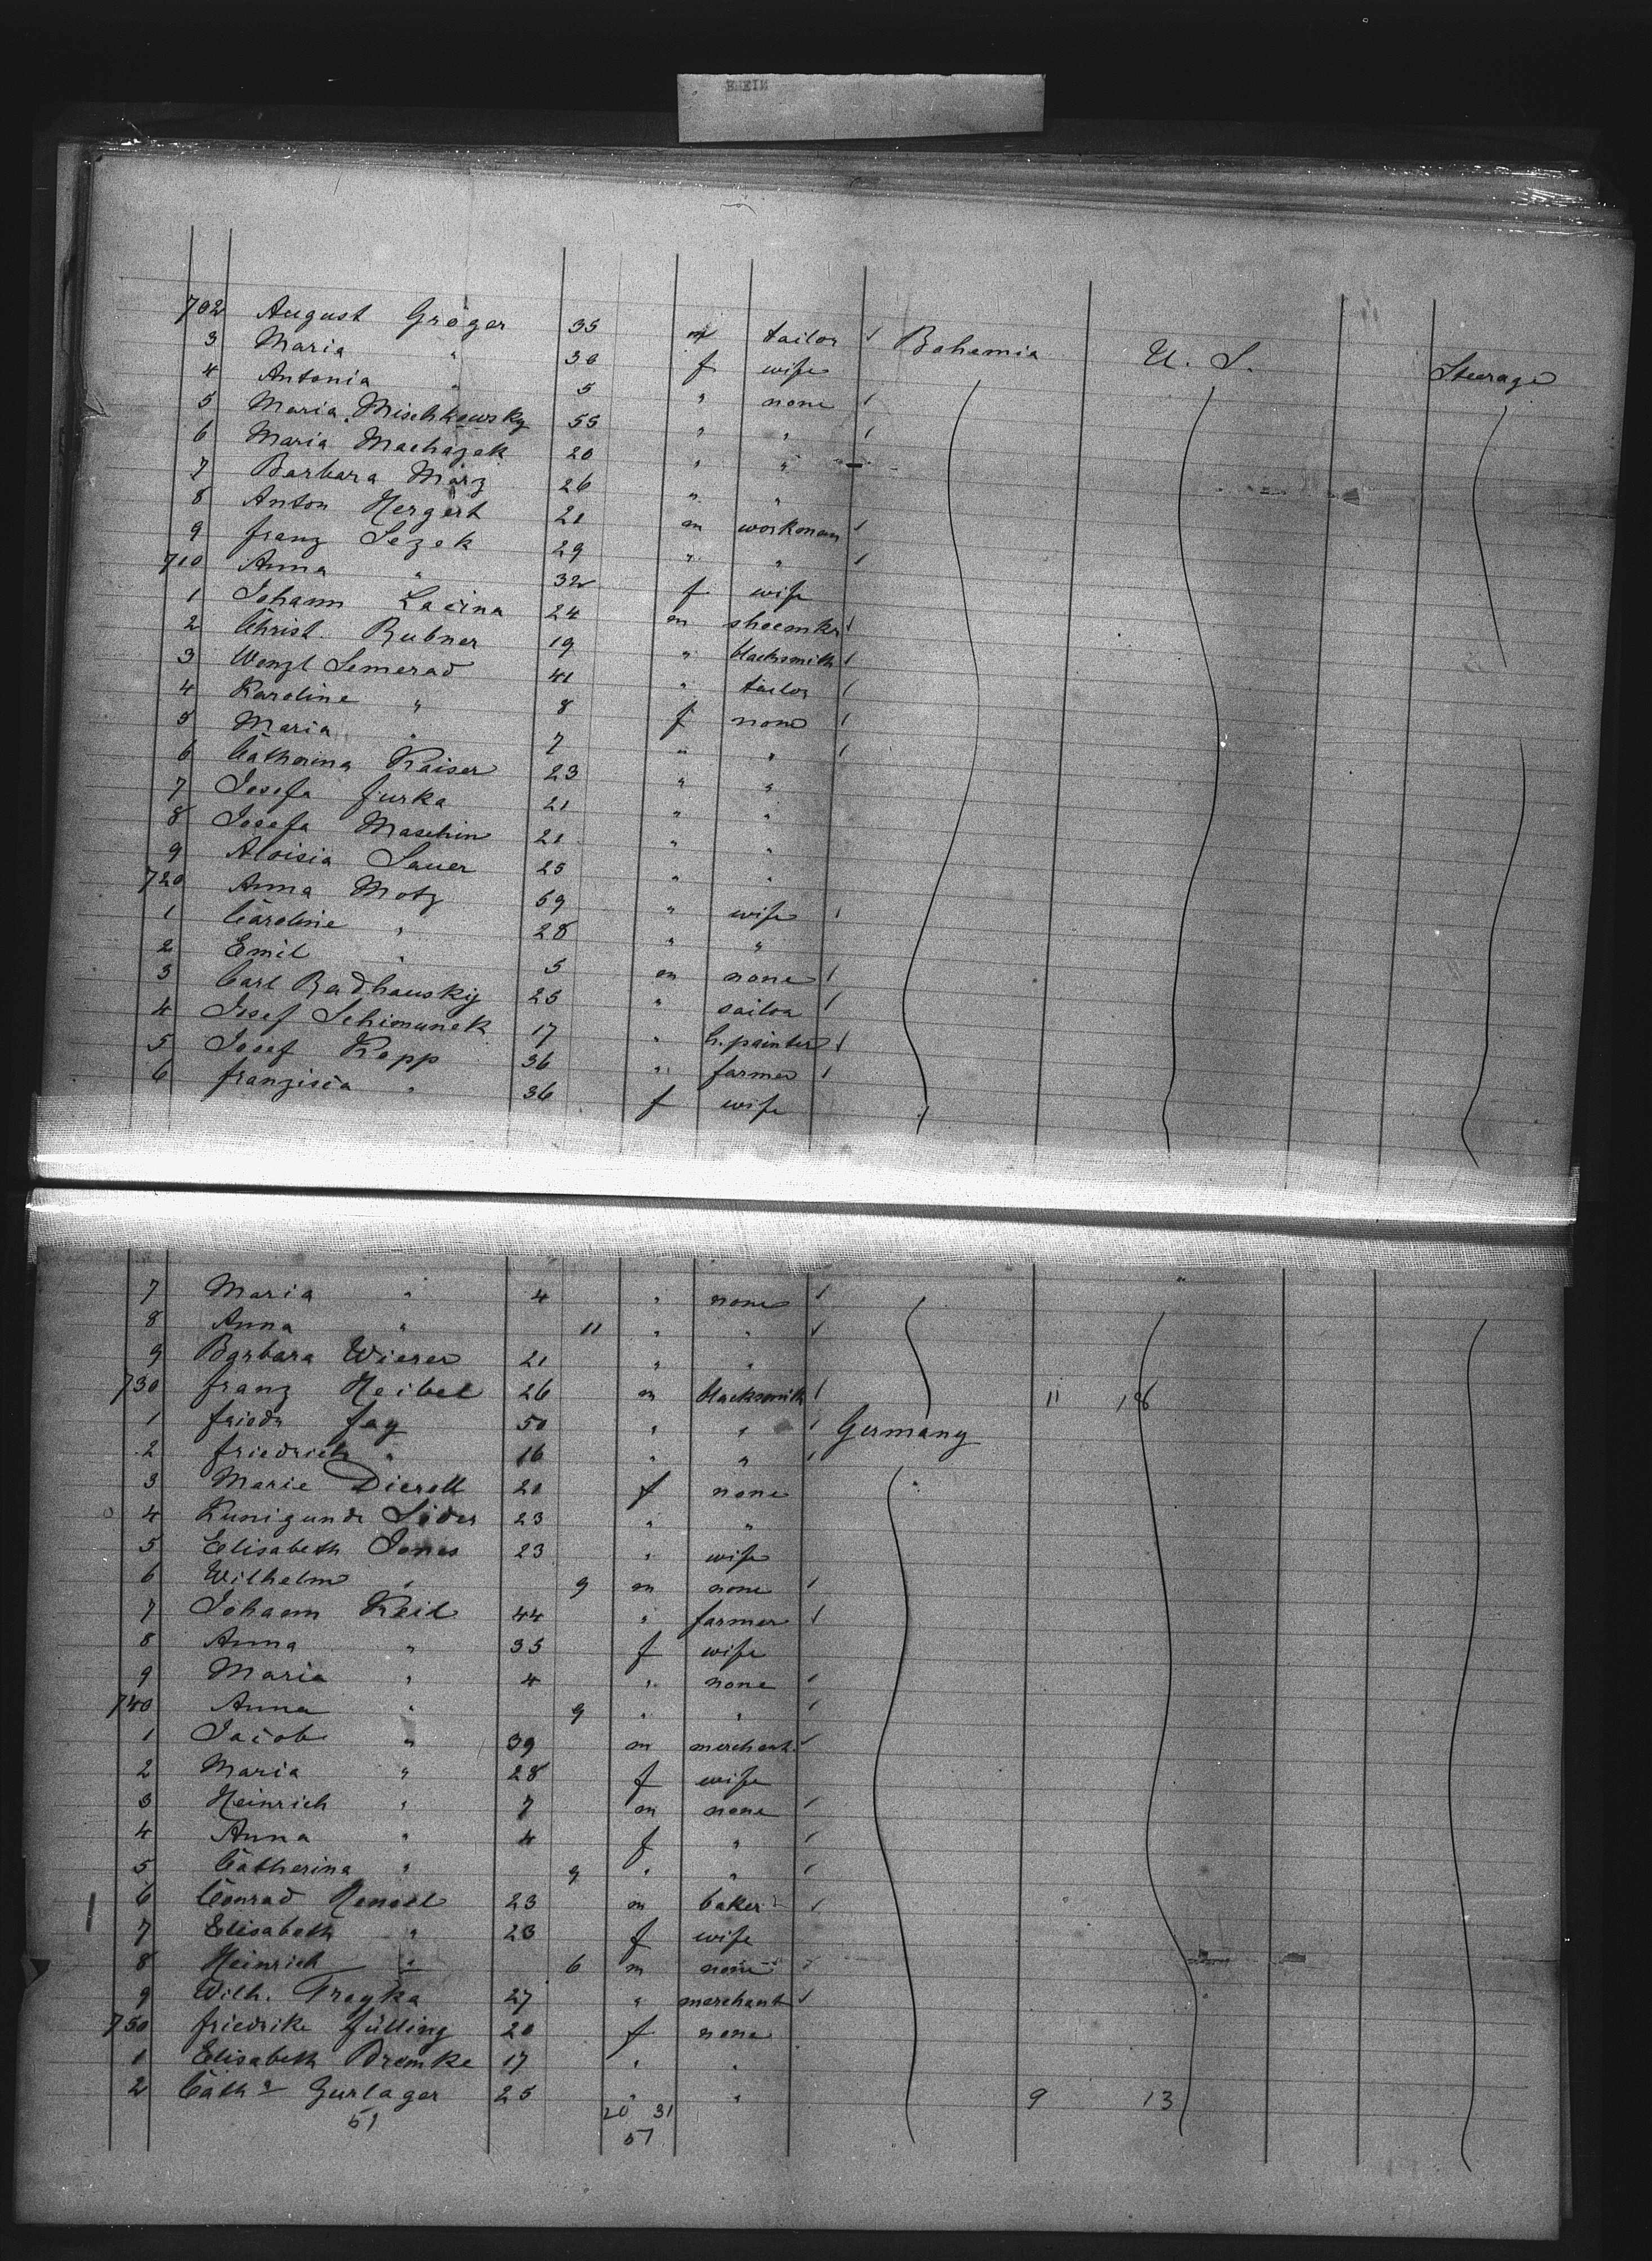 702 August Gröger 35 m tailor Bohemia U. S. Steerage
3 Maria " 36 f wife
4 Antonia " 5 " none
5 Maria Mischkowsky 55 " "
6 Maria Machazek 20 " "
7 Barbara März 26 " "
8 Anton Hergert 21 m workman
9 Franz Sezek 29 " "
710 Anna " 32 f wife
1 Johann Lacina 24 m shoemkr
2 Christ. Rubner 19 " blacksmith
3 Wenzl Semerad 41 " tailor
4 Karoline " 8 f none
5 Maria " 7 " "
6 Catherina Kaiser 23 " "
7 Josefa Furka 21 " "
8 Josefa Maschin 21 " "
9 Aloisia Sauer 25 " "
720 Anna Motz 59 " wife
1 Caroline " 28 " "
2 Emil " 5 m none
3 Carl Radhausky 25 " sailor
4 Josef Schimunek 17 " h. painter
5 Josef Kopp 36 " farmer
6 Franzisca " 36 f wife
7 Maria " 4 " none
8 Anna " 11 " "
9 Barbara Wierer 21 " "
730 Franz Heibel 26 m blacksmith 11 18
1 Friedr Fay 50 " " Germany
2 Friedrich " 16 " "
3 Marie Dieroll 20 f none
4 Kunigunde Söder 23 " "
5 Elisabeth Jones 23 " wife
6 Wilhelm " 9 m none
7 Johann Keil 44 " farmer
8 Anna " 35 f wife
9 Maria " 4 " none
740 Anna " 9 " "
1 Jacob " 39 m merchant
2 Maria " 28 f wife
3 Heinrich " 7 m none
4 Anna " 4 f "
5 Catherina " 9 " "
6 Conrad Hensel 23 m baker
7 Elisabeth " 23 f wife
8 Heinrich " 6 m none
9 Wilh. Trayka 27 " merchant
750 Friedrike Fülling 20 f none
1 Elisabeth Dremke 17 " "
2 Cath. Gerlager 25 " " 9 13
51 20 31
51